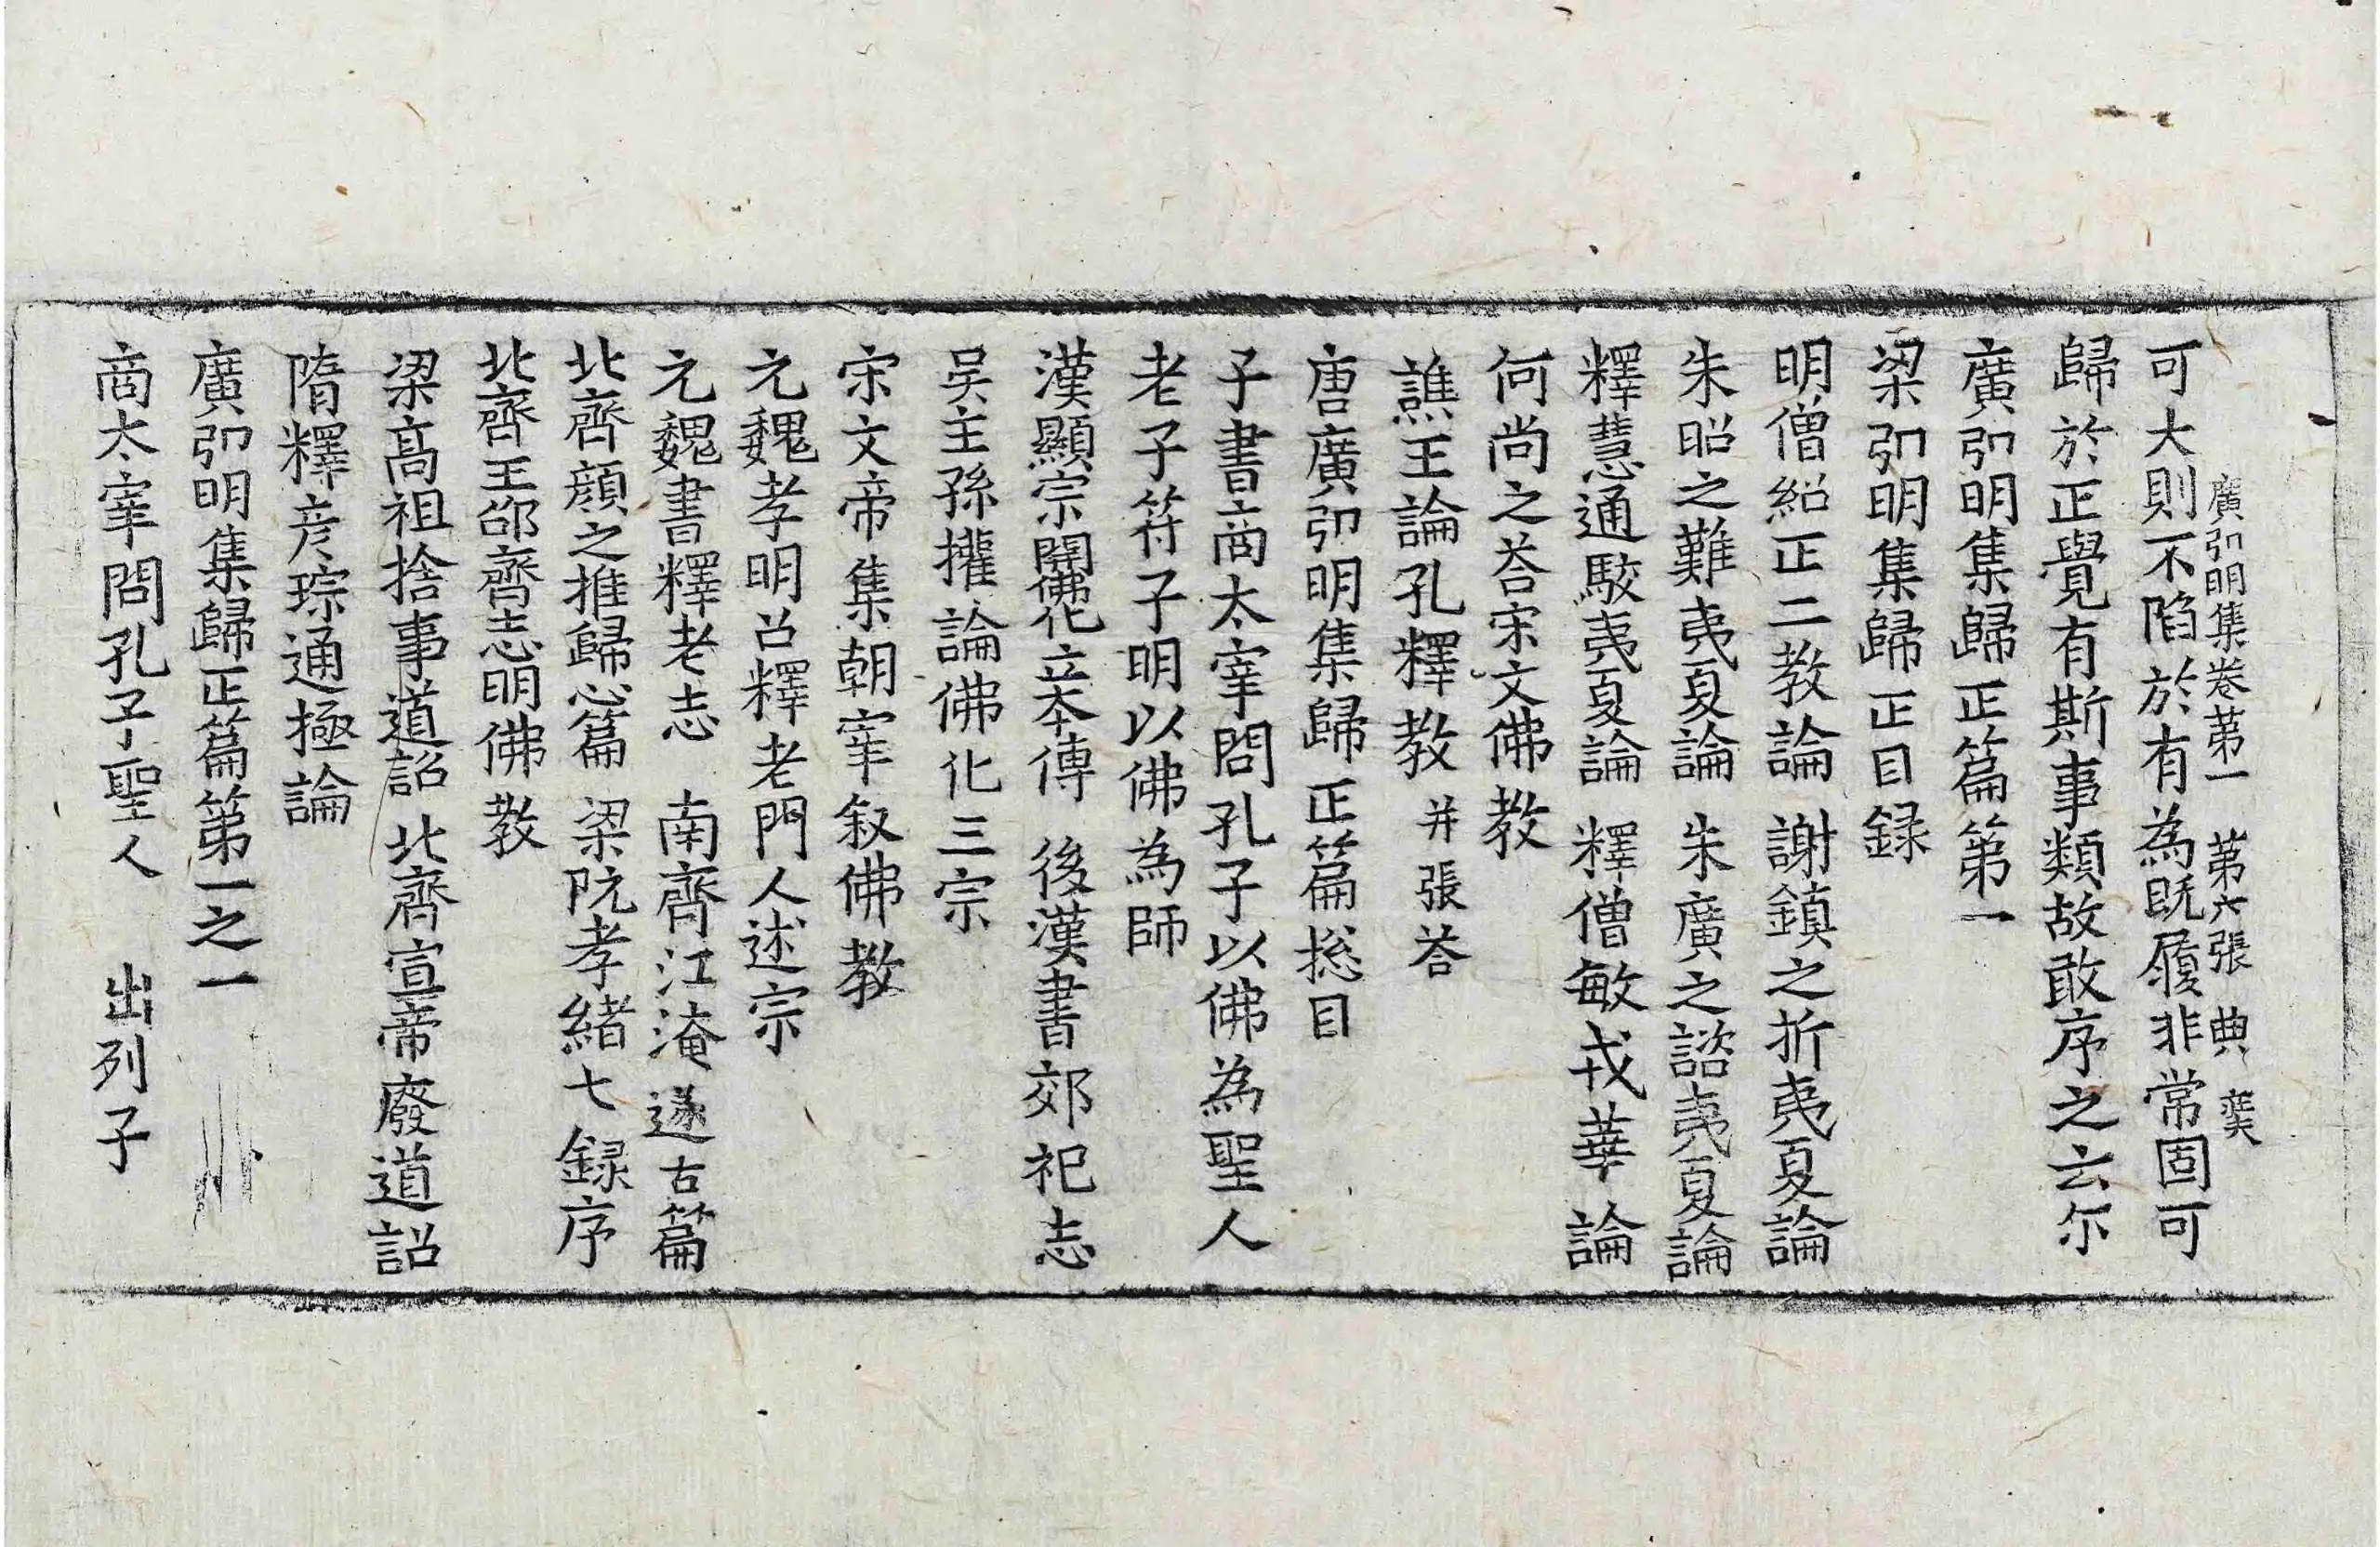 廣弘明集卷第一 第六張 典
可大則不陷於有為旣履非常固可
歸於正覺有斯事類故敢序之云尒
廣弘明集歸正篇第一
梁弘明集歸正目録
明僧紹正二教論 謝鎮之折夷夏論
朱昭之難夷夏論 朱廣之諮夷夏論
釋慧通駮夷夏論 釋僧敏戎華論
何尚之荅宋文佛教
譙王論孔釋教 并張荅
唐廣弘明集歸正篇捴目
子書商太宰問孔子以佛為聖人
老子符子明以佛為師
漢顯宗開佛化立本傳 後漢書郊祀志
吴主孫權論佛化三宗
宋文帝集朝宰叙佛教
元魏孝明召釋老門人述宗
元魏書釋老志 南齊江淹遂古篇
北齊顔之推歸心篇 梁阮孝緒七録序
北齊王邵齊志明佛教
梁高祖捨事道詔 北齊宣帝廢道詔
隋釋彦琮通極論
廣弘明集歸正篇第一之一
商太宰問孔子聖人 出列子